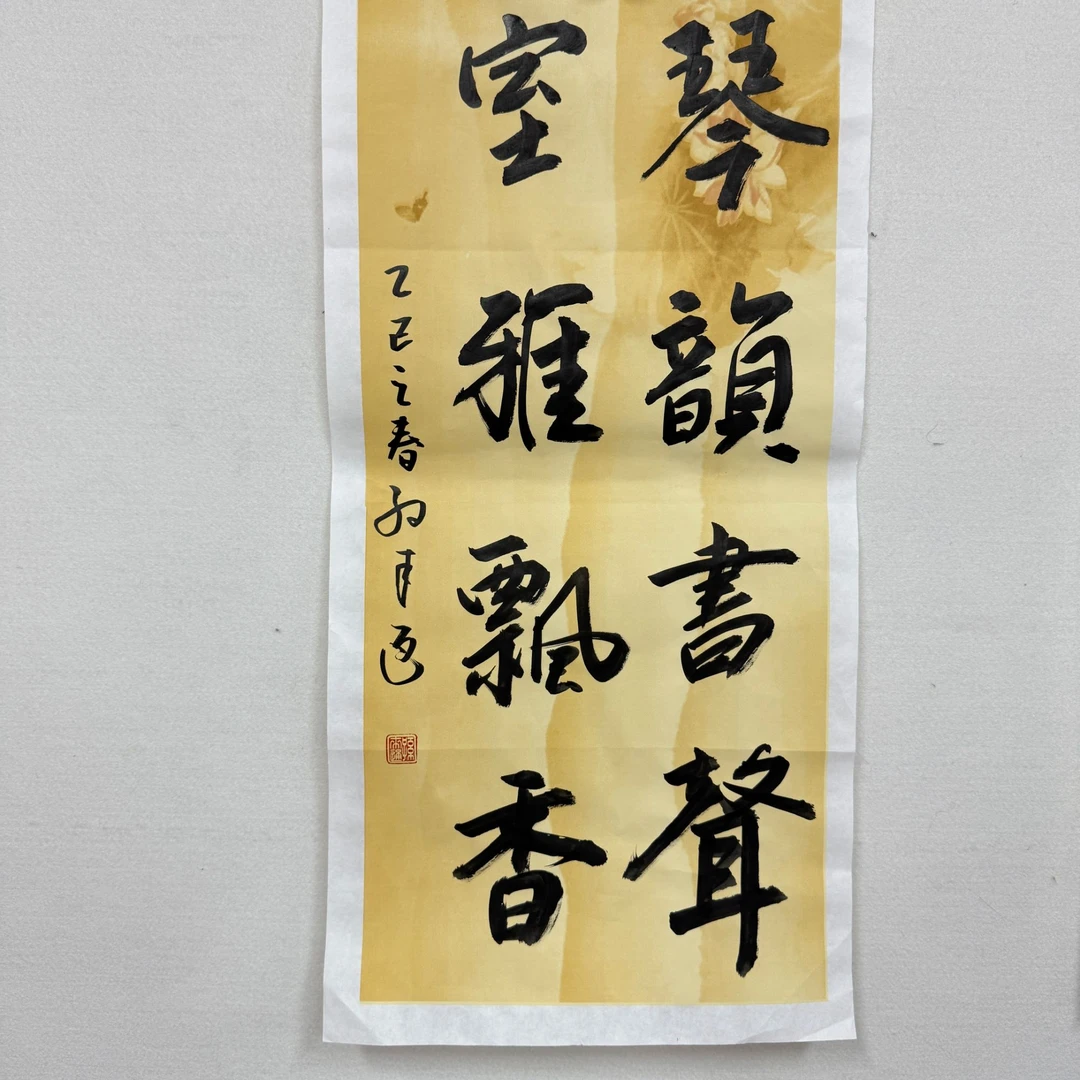 琴韻書聲
室雅飄香
乙巳之春